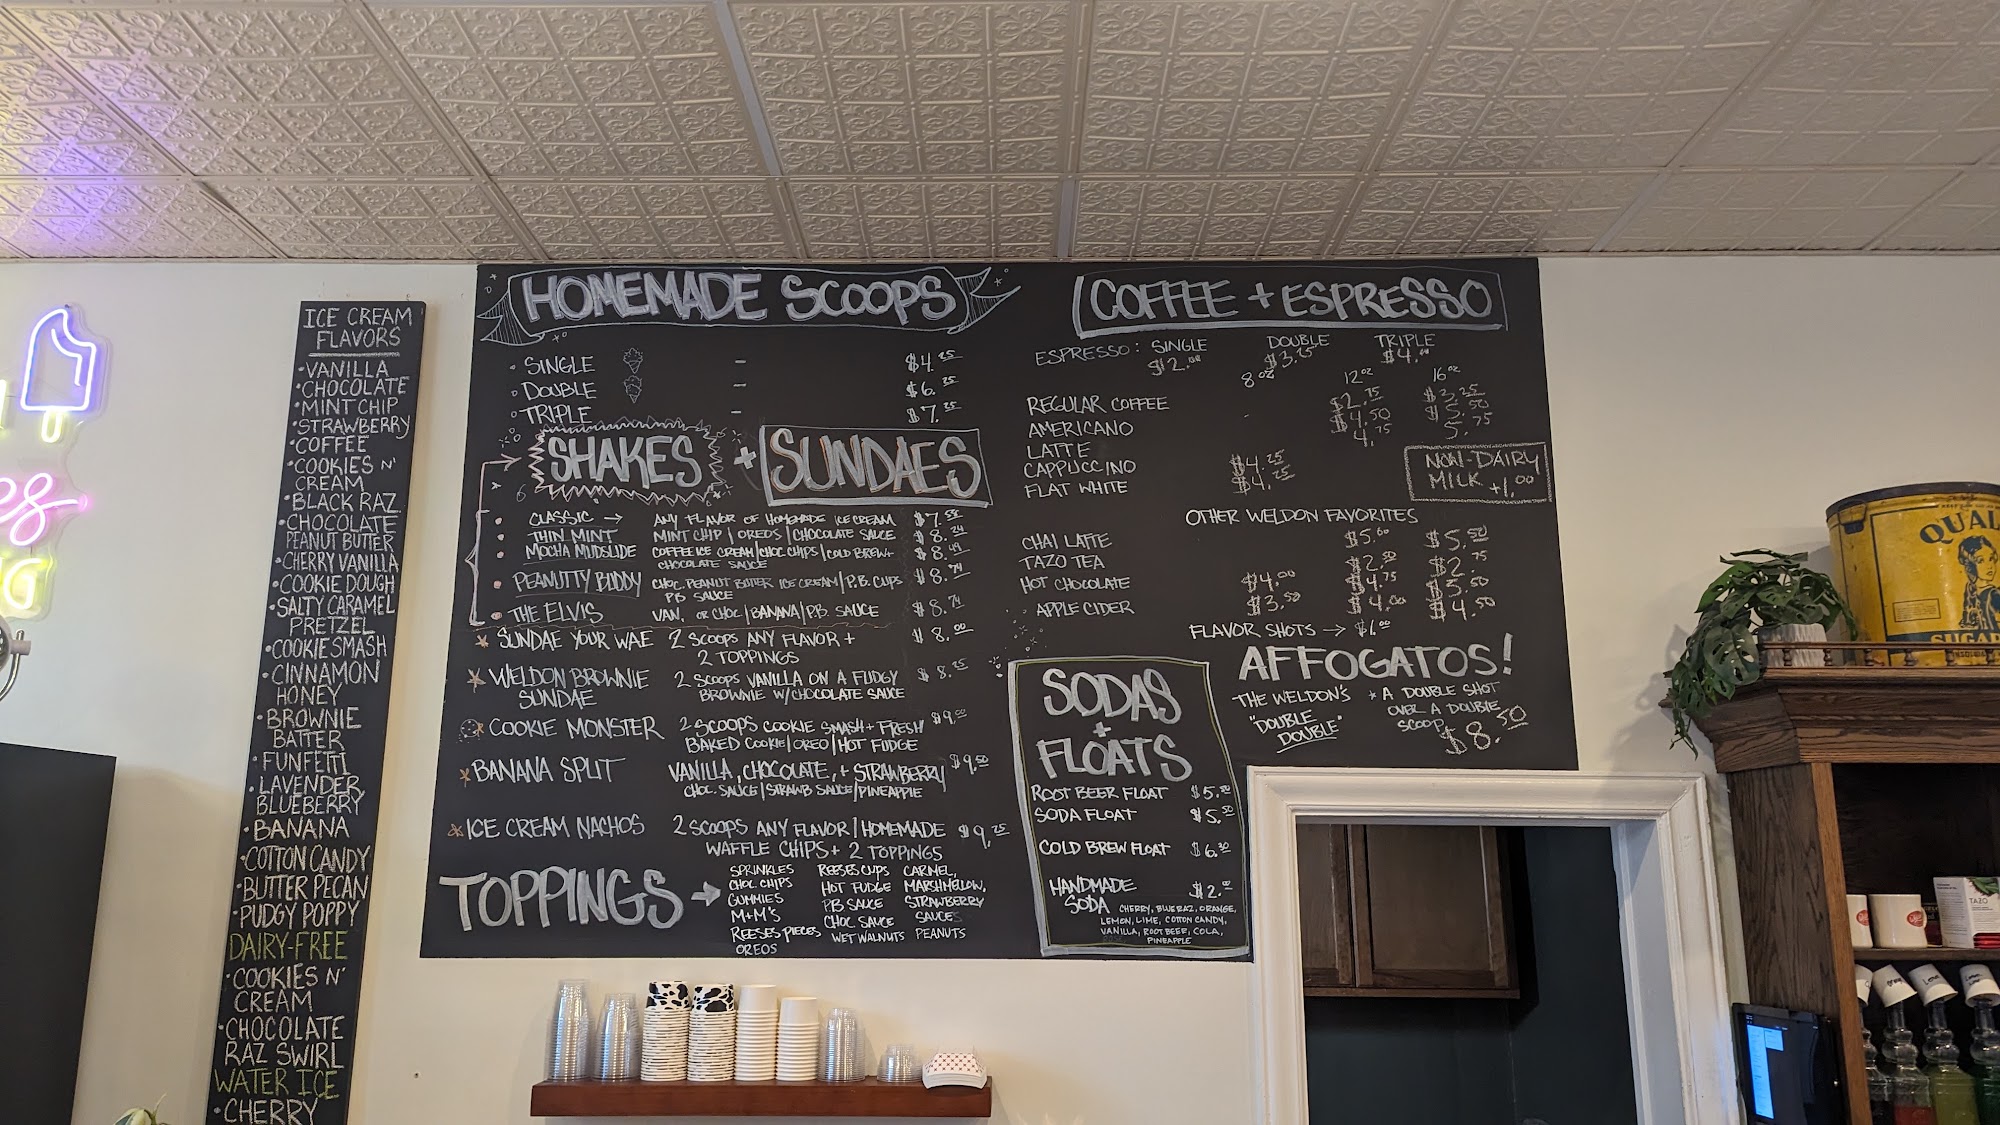 ICE CREAM
FLAVORS
• VANILLA
• CHOCOLATE
• MINT CHIP
• STRAWBERRY
• COFFEE
• COOKIES N'
CREAM
• BLACK RAZ.
• CHOCOLATE
PEANUT BUTTER
• CHERRY VANILLA
• COOKIE DOUGH
• SALTY CARAMEL
PRETZEL
• COOKIE SMASH
• CINNAMON
HONEY
• BROWNIE
BATTER
• FUNFETTI
• LAVENDER
BLUEBERRY
• BANANA
• COTTON CANDY
• BUTTER PECAN
• PUDGY POPPY
DAIRY-FREE
• COOKIES N'
CREAM
• CHOCOLATE
RAZ SWIRL
WATER ICE
• CHERRY
HOMEMADE SCOOPS
• SINGLE - $4.25
• DOUBLE - $6.25
• TRIPLE - $7.25
SHAKES + SUNDAES
• CLASSIC → ANY FLAVOR OF HOMEMADE ICE CREAM
• THIN MINT MINT CHIP / OREOS / CHOCOLATE SAUCE $8.24
• MOCHA MUDSLIDE COFFEE ICE CREAM / CHOC CHIPS / COLD BREW + $8.49
CHOCOLATE SAUCE
• PEANUTTY BUDDY CHOC. PEANUT BUTTER ICE CREAM / P.B. CUPS $8.74
P.B SAUCE
• THE ELVIS VAN. OR CHOC / BANANA / P.B. SAUCE $8.74
SUNDAE YOUR WAE 2 SCOOPS ANY FLAVOR + $8.00
2 TOPPINGS
WELDON BROWNIE 2 SCOOPS VANILLA ON A FUDGY $8.25
SUNDAE BROWNIE W/ CHOCOLATE SAUCE
COOKIE MONSTER 2 SCOOPS COOKIE SMASH + FRESH $9.00
BAKED COOKIE / OREO / HOT FUDGE
BANANA SPLIT VANILLA, CHOCOLATE, + STRAWBERRY $9.50
CHOC. SAUCE / STRAWB SAUCE / PINEAPPLE
ICE CREAM NACHOS 2 SCOOPS ANY FLAVOR / HOMEMADE $9.25
WAFFLE CHIPS + 2 TOPPINGS
TOPPINGS →
SPRINKLES
CHOC. CHIPS
GUMMIES
M+M'S
REESES PIECES
OREOS
REESES CUPS
HOT FUDGE
P.B SAUCE
CHOC SAUCE
WET WALNUTS
CARMEL,
MARSHMELLOW,
STRAWBERRY
SAUCES
PEANUTS
COFFEE + ESPRESSO
ESPRESSO: SINGLE DOUBLE TRIPLE
$2.00 $3.25 $4.00
8 oz 12 oz 16 oz
REGULAR COFFEE $2.75 $3.25
AMERICANO $4.50 $5.50
LATTE 4.75 5.75
CAPPUCCINO $4.25
FLAT WHITE $4.25
NON-DAIRY
MILK +1.00
OTHER WELDON FAVORITES
CHAI LATTE $5.00 $5.50
TAZO TEA $2.50 $2.75
HOT CHOCOLATE $4.00 $4.75 $5.50
APPLE CIDER $3.50 $4.00 $4.50
FLAVOR SHOTS → $1.00
AFFOGATOS!
THE WELDON'S * A DOUBLE SHOT
"DOUBLE OVER A DOUBLE
DOUBLE" SCOOP $8.50
SODAS
+
FLOATS
ROOT BEER FLOAT
SODA FLOAT $5.50
COLD BREW FLOAT
HANDMADE $2.00
SODA CHERRY, BLUE RAZ, ORANGE,
LEMON, LIME, COTTON CANDY,
VANILLA, ROOT BEER, COLA,
PINEAPPLE
QUAL
SUGAR
TAZO